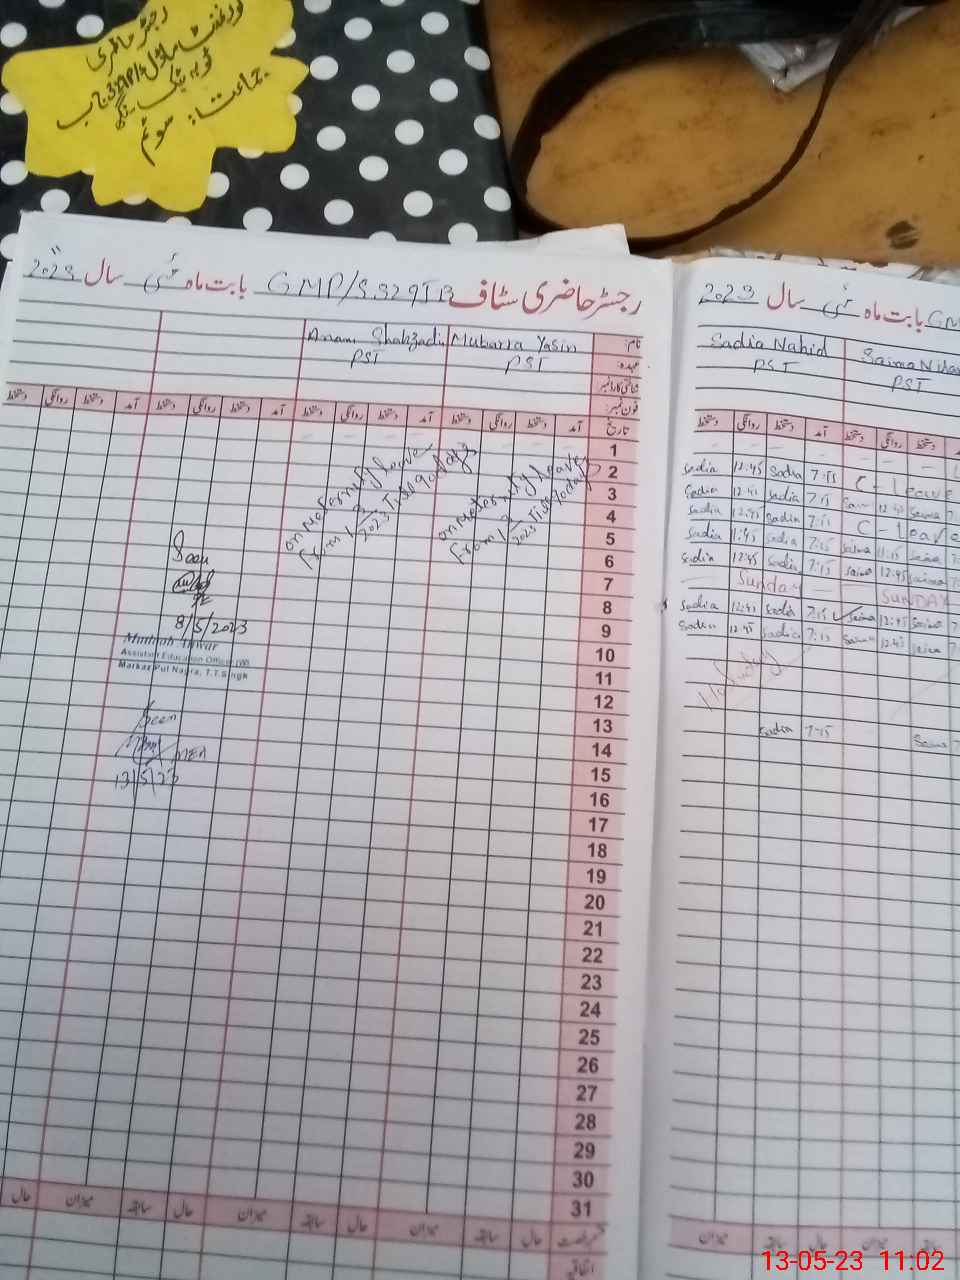 رجسٹر حاضری
گورنمنٹ ماڈل
ٹوبہ ٹیک سنگھ
جماعت: سوئم
رجسٹر حاضری سٹاف GMP/S 329 بابت ماہ مئی سال 2023
نام: Mubarra Yasin Anam Shahzadi
عہدہ: PST PST
شناختی کارڈ نمبر
فون نمبر:
تاریخ آمد دستخط روانگی دستخط آمد دستخط روانگی دستخط آمد دستخط روانگی دستخط آمد دستخط روانگی دستخط
1
2
3
4
5
6
7
8
9
10
11
12
13
14
15
16
17
18
19
20
21
22
23
24
25
26
27
28
29
30
31
on Maternity leave
From
2023 Till 90 days
on Maternity leave
From
2023 Till 90 days
Seen
8/5/2023
Anwar
Assistant Education Officer (W)
Markaz Pul Nagra, T.T.Singh
Seen
13/5/23
رخصت حال سابقہ میزان حال سابقہ میزان حال سابقہ میزان حال
اتفاقیہ
بابت ماہ مئی سال 2023
Sadia Nahid Saima
PST PST
آمد دستخط روانگی دستخط دستخط روانگی دستخط
Sadia 12:45 Sadia 7:15 C-Leave
Sadia Sadia 7:15 Saima
Sadia 12:45 Sadia C-Leave
Sadia 11:45 Sadia 7:15 Saima 11:15 Saima
Sadia 12:45 Sadia 7:15 Saima 12:45 Saima
Sunday SUNDAY
Sadia 12:45 Sadia 7:15 Saima 12:45 Saima
Sadia 12:45 Sadia 7:15 Saima 12:45 Saima
Holiday
Sadia 7-15 Saima
میزان سابقہ حال میزان سابقہ
13-05-23 11:02